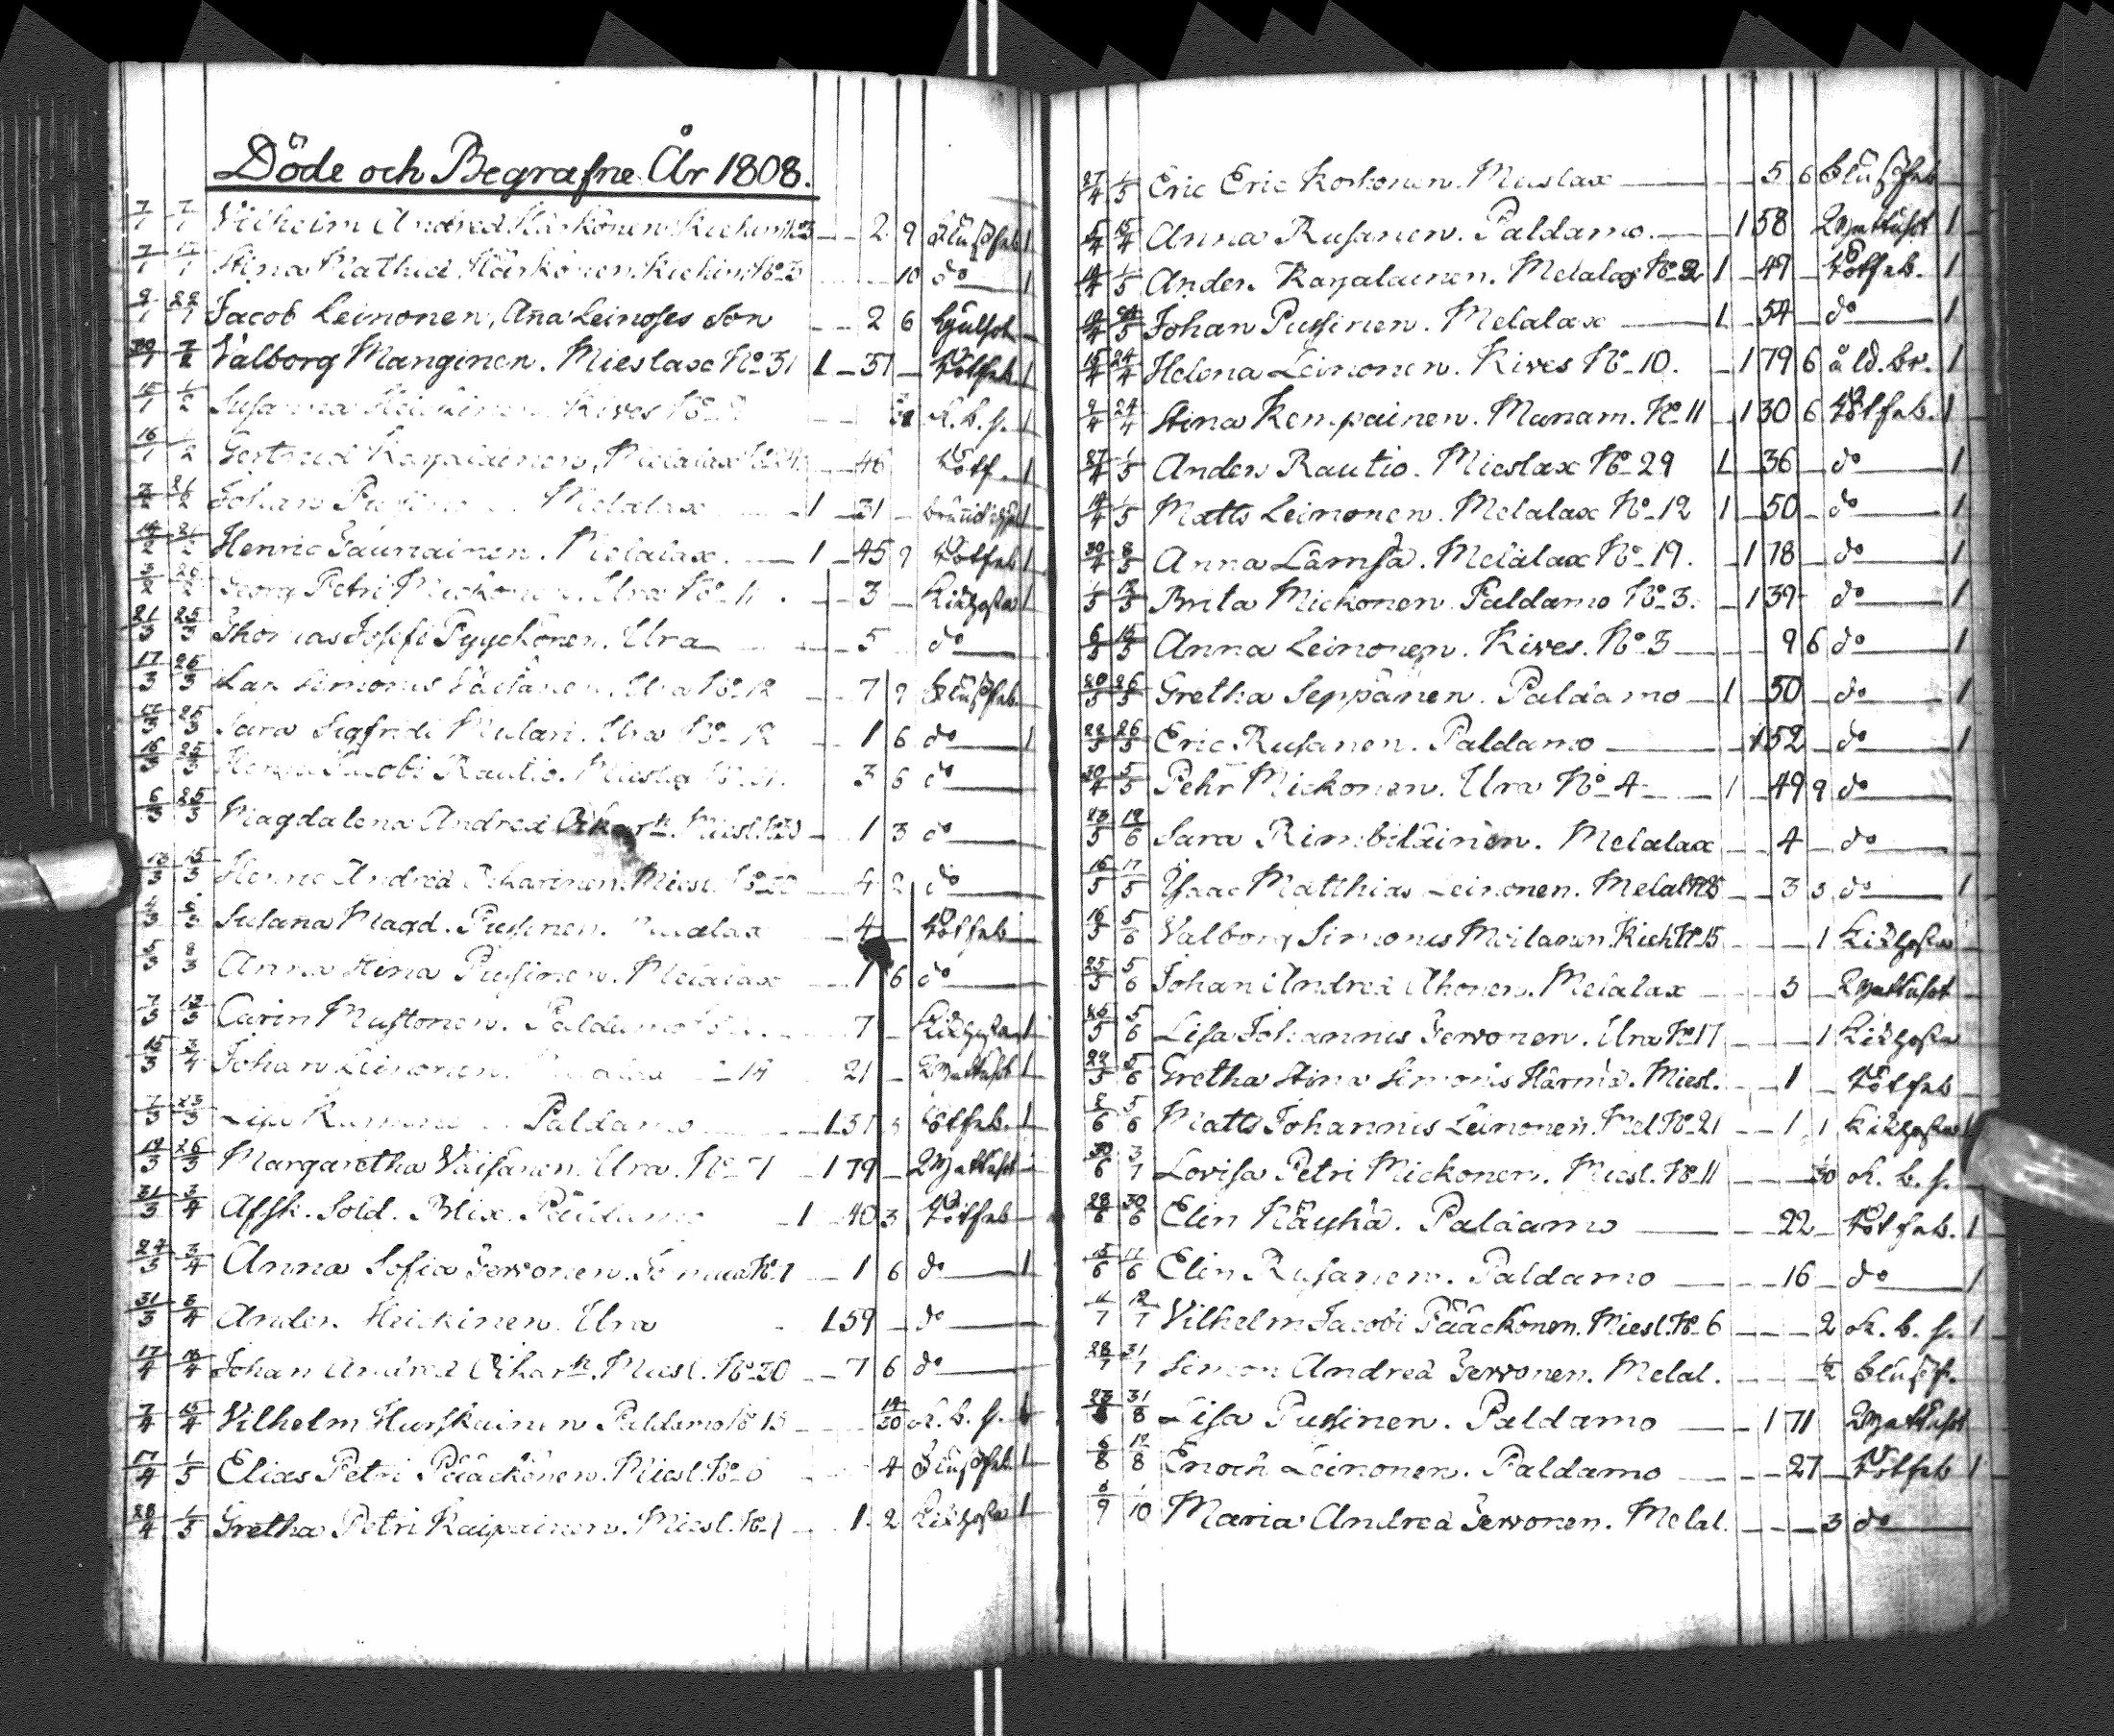 Döde och Begrafne År 1808.
7/1 7/1 Vilhelm Andreæ Härkönen 2 9
7/1 17/1 Stina Mathiæ Härkönen 10 do 1
Jacob Leinonen, Aña Leinoses son 2 6
30/1 7/2 Valborg Manginen. Mieslax No 31 1 31 Rötfeb. 1
15/1 1/2 Susanna Kives No k. b. s. 1
16/1 1/2 Gertrud Karjalainen, Melalax 46 Rötf. 1
Johan Melalax 1 31 1
14/2 21/2 Henric Jaunainen. Melalax 1 45 9 Rötfeb 1
Georg Petri Mickonen. Ura No 11 3 Kikhosta 1
21/3 25/3 Thomas Josefi Pyyckönen. Ura 5 do
17/3 25/3 Lars Simonis Väisänen. Ura No 12 7 9
17/3 25/3 Sara Sigfridi Mulari. Ura No 12 1 6 do 1
16/3 25/3 Jacobi Rautio. 3 6 do
6/3 25/3 Magdalena Andreæ Oikarn. Miesl. No 30 1 3 do
13/3 15/3 Henric Andreæ Oikarinen. Miesl. No 30 4 2 do
Susaña Magd. Pussinen. Melalax 4 Rötfeb
5/3 8/3 Anna Stina Pussinen. Melalax 1 6 do
7/3 13/3 Carin Mustonen. Paldamo 7 Kikhosta 1
15/3 3/4 Johan Leinonen. 14 21 1
7/3 13/3 Paldamo 1 31 Rötfeb. 1
19/3 26/3 Margaretha Väisänen. Ura. No 7 1 79
31/3 3/4 Afsk. Sold. Blix. Paldamo 1 40 3 Rötfeb
27/3 3/4 Anna Sofia Jervonen. 1 6 do 1
31/3 3/4 Anders Heickinen. Ura 1 59 do
17/4 18/4 Johan Andreæ Oikarn. Miesl. No 30 7 6 do
7/4 15/4 Vilhelm Hurskainen Paldamo No 13 14/30 k. b. s. 1
17/4 1/5 Elias Petri Pääckönen. Miesl. No 6 4 1
28/4 1/5 Gretha Petri Kaipainen. Miesl. No 1 1 2 Kikhosta 1
27/4 1/5 Eric Eric Korhonen. Mieslax 5 6
5/4 15/4 Anna Rusanen. Paldamo. 1 58 1
14/4 1/5 Anders Karjalainen. Melalax No 2 1 49 Rötfeb. 1
Johan Pussinen. Melalax 1 54 do 1
15/4 24/4 Helena Leinonen. Kives No 10. 1 79 6 åld. br. 1
9/4 24/4 Stina Kempainen. Manam. No 11 1 30 6 Rötfeb. 1
27/4 1/5 Anders Rautio. Mieslax No 29 1 36 do 1
14/4 1/5 Matts Leinonen. Melalax No 12 1 50 do 1
30/4 8/5 Anna Lämsä. Melalax No 19. 1 78 do 1
1/5 13/5 Brita Mickonen Paldamo No 3. 1 39 do 1
6/5 15/5 Anna Leinonen. Kives. No 3 9 6 do 1
20/5 26/5 Gretha Seppänen. Paldamo 1 50 do 1
22/5 26/5 Eric Rusanen. Paldamo 1 52 do 1
30/4 5/5 Pehr Mickonen. Ura No 4 1 49 9 do
23/5 12/6 Sara Rimbiläinen. Melalax 4 do
16/5 17/5 Isaac Matthias Leinonen. Melal. 3 3 do 1
16/5 5/6 Valborg Simonis Moilanen. Kieh. No 15 1 Kikhosta
25/5 5/6 Johan Andreæ Ahonen. Melalax 3
26/5 5/6 Lisa Johannis Jervonen. Ura No 17 1 Kikhosta
22/5 5/6 Gretha Stina Simonis Härmä. Miesl. 1 Rötfeb
2/6 5/6 Matts Johannis Leinonen. Mel. No 21 1 1 Kikhosta 1
30/6 3/7 Lovisa Petri Mickonen. Miesl. No 11 k. b. s.
28/6 30/6 Elin Käyhä. Paldamo 22 Rötfeb. 1
15/6 17/6 Elin Rusanen. Paldamo 16 do 1
11/7 12/7 Vilhelm Jacobi Pääckönen. Miesl. No 6 2 k. b. s. 1
28/7 31/7 Simon Andreæ Jervonen. Melal. 1/2
23/8 31/8 Lisa Pussinen. Paldamo 1 71
6/8 12/8 Enoch Leinonen. Paldamo 27 Rötfeb 1
3/9 1/10 Maria Andreæ Jervonen. Melal. 3 do